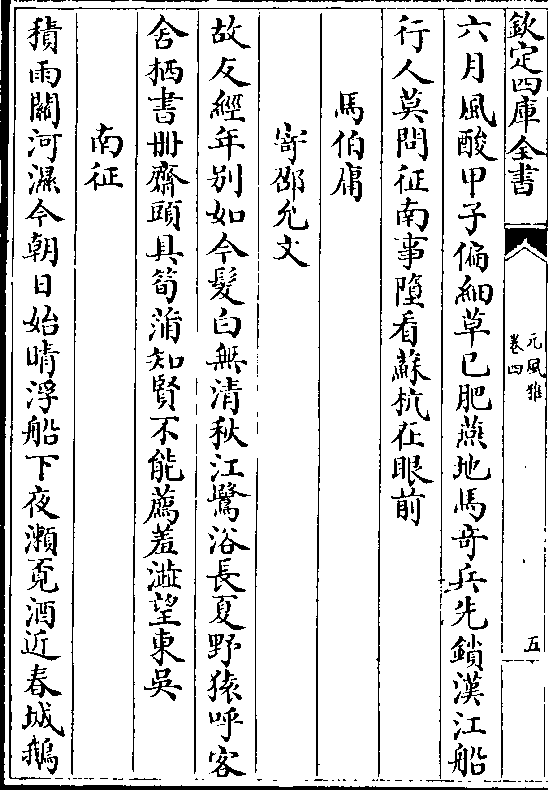 欽定四庫全書
元風雅
卷四
五
六月風酸甲子偏細草已肥燕地馬奇兵先鎖漢江船
行人莫問征南事隨看蘇杭在眼前
馬伯庸
寄鄧允文
故友經年别如今髮白無清秋江鷺浴長夏野猿呼客
舍栖書冊齋頭具筍蒲知賢不能薦羞澁望東吳
南征
積雨闗河濕今朝日始晴浮船下夜瀬覓酒近春城鵝